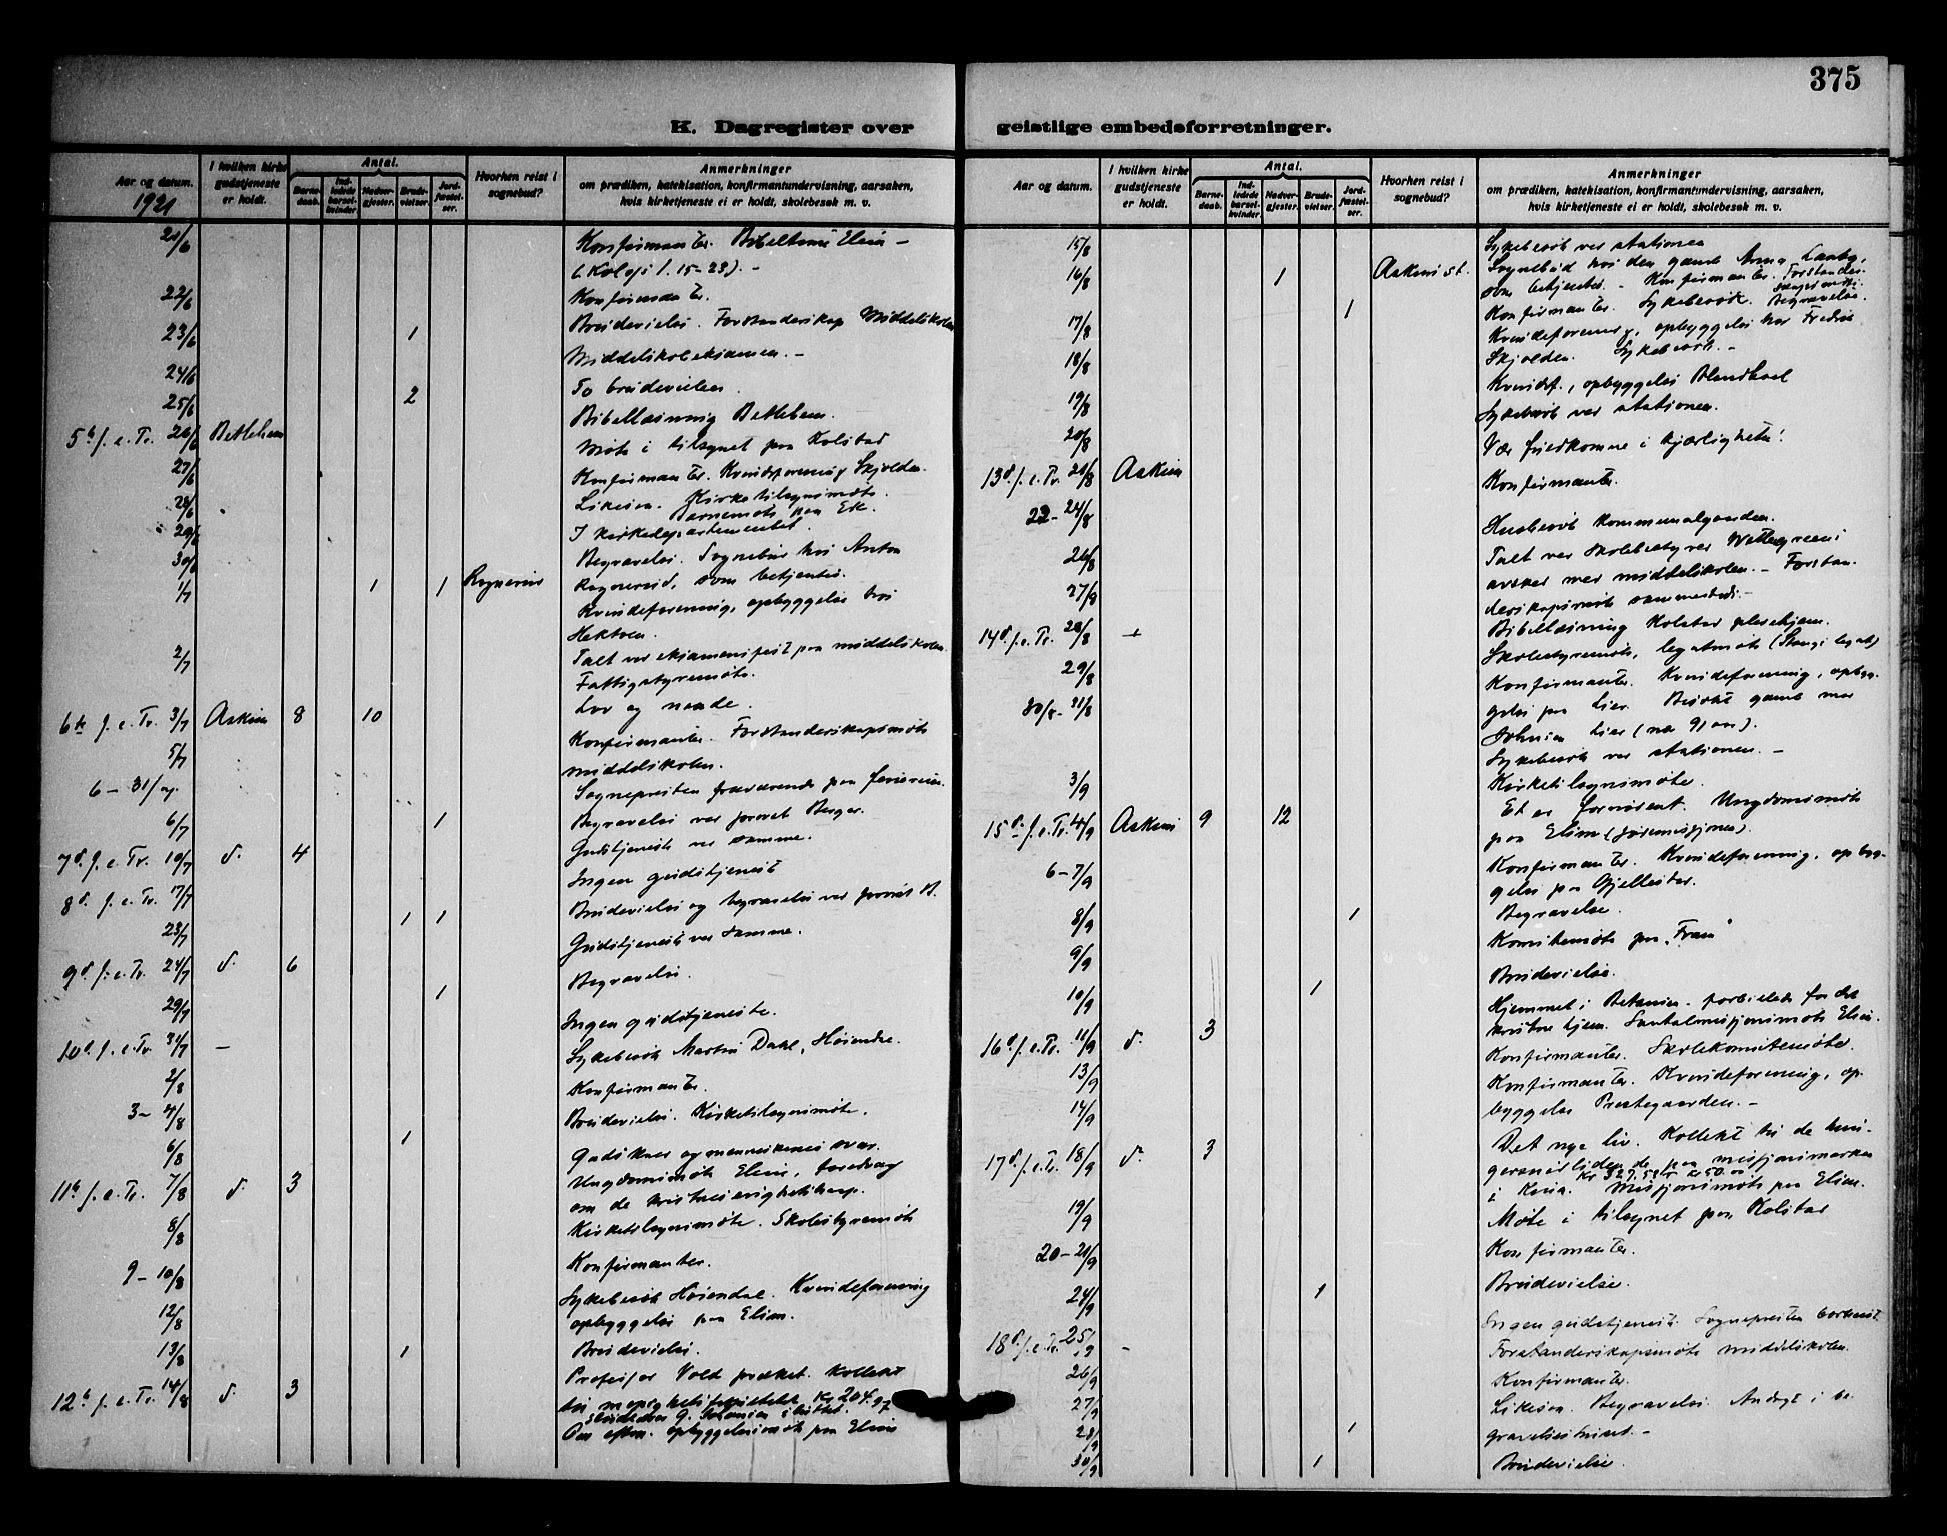 375
K. Dagregister over geistlige embedsforretninger.
Aar og datum. 1921
I hvilken kirke gudstjeneste er holdt.
Antal.
Barnedaab.
Indledede barselkvinder.
Nadvergjester.
Brudevielser.
Jordfæstelser.
Hvorhen reist i sognebud?
Anmerkninger
om prædiken, katekisation, konfirmantundervisning, aarsaken,
hvis kirketjeneste ei er holdt, skolebesøk m. v.
21/6 Konfirmanter. Elim –
(Kol 1. 15-23). –
22/6 Konfirmanter.
23/6 1 Brudevielse. Forstanderskap Middelskolen
24/6 Middelskoleeksamen. –
25/6 2 To brudevielser.
5te s. e. Tr. 26/6 Betlehem Bibellæsning Betlehem.
27/6 Møte i tilsynet paa Kolstad
28/6 Konfirmanter. Kvindeforening Skjolden.
29/6 Likesaa. Kirketilsynsmøte.
Barnemøte paa Ek.
30/6 I kirkedepartementet.
1/7 1 1 Begravelse. Sognebud hos Anton
som betjentes.
Kvindeforening, opbyggelse hos
Hektoen.
2/7 Talt ved eksamensfest paa middelskolen.
Fattigstyremøte.
6te s. e. Tr. 3/7 Askim 8 10 Lov og naade.
5/7 Konfirmanter. Forstanderskapsmøte
middelskolen.
6 – 31/ Sognepresten fraværende paa feriereise.
6/7 1 Begravelse ved provst Berger.
7d. s. e. Tr. 10/7 d. 4 Gudstjeneste ved samme.
8d. s. e. Tr. 17/7 Ingen gudstjeneste
23/7 1 1 Brudevielse og begravelse ved provst B.
9d. s. e. Tr. 24/7 d. 6 Gudstjeneste ved samme.
29/7 1 Begravelse.
10d. s. e. Tr. 31/7 – Ingen gudstjeneste.
2/8 Sykebesøk Martin Dahl,
3 – 4/8 Konfirmanter.
6/8 1 Brudevielse. Kirketilsynsmøte.
11te s. e. Tr. 7/8 d. 3 Guds og menneskenes svar.
Ungdomsmøte Elim, foredrag
om de
8/8 Kirketilsynsmøte. Skolestyremøte
9 – 10/8 Konfirmanter.
12/8 Sykebesøk Kvindeforening
opbyggelse paa Elim.
13/8 1 Brudevielse.
12te s. e. Tr. 14/8 d. 3 Professor Vold præket. Kollekt
til menighetsfakultetet Kr 204.97
Om efterm. opbyggelsesmøte paa Elim
15/8 Sykebesøk ved stationen
16/8 1 Askim st. Sognebud hos den gamle Anna
som betjentes. – Konfirmanter. Forstanderskapsmøte.
17/8 1 Konfirmanter. Sykebesøk. Begravelse.
18/8 Kvindeforening, opbyggelse hos Fredrik
Skjolden. Sykebesøk. –
19/8 Kvindef., opbyggelse
20/8 Sykebesøk ved stationen.
13d. s. e. Tr. 21/8 Askim Vær fuldkomne i kjærligheten!
22 – 24/8 Konfirmanter.
26/8 Husbesøk kommunalgaarden.
27/8 Talt ved skolebestyrer
avsked med middelskolen. – Forstanderskapsmøte sammesteds. –
14d. s. e. Tr. 28/8 Bibellæsning Kolstad pleiehjem.
29/8 Skolestyremøte, legatmøte
30/8 – 31/8 Konfirmanter. Kvindeforening, opbyggelse paa Lier. Besøkt gamle mor
Lier (nær 91 aar).
3/9 Sykebesøk ved stationen. –
Kirketilsynsmøte
15de s. e. Tr. 4/9 Askim 9 12 Et er fornødent. Ungdomsmøte
paa Elim
6 – 7/9 Konfirmanter. Kvindeforening, opbyggelse paa
8/9 1 Begravelse.
9/9 Komitemøte paa „Fram"
10/9 1 Brudevielse.
16d. s. e. Tr. 11/9 d. 3 Hjemmet i Betania – forbillede for det
kristne hjem. Santalmisjonsmøte Elim.
13/9 Konfirmanter. Skolekomitemøte.
14/9 Konfirmanter. Kvindeforening, opbyggelse Prestegaarden. –
17d. s. e. Tr. 18/9 d. 3 Det nye liv. Kollekt til de hungersnødlidende paa misjonsmarken
i Kina. Misjonsmøte paa Elim.
19/9 Møte i tilsynet paa Kolstad
20 – 21/9 Konfirmanter.
24/9 1 Brudevielse.
18d. s. e. Tr. 25/9 – Ingen gudstjeneste. Sognepresten bortreist
26/9 Forstanderskapsmøte middelskolen.
27/9 Konfirmanter.
28/9 1 Likesaa. Begravelse. Andagt i begravelseshuset. –
30/9 1 Brudevielse.